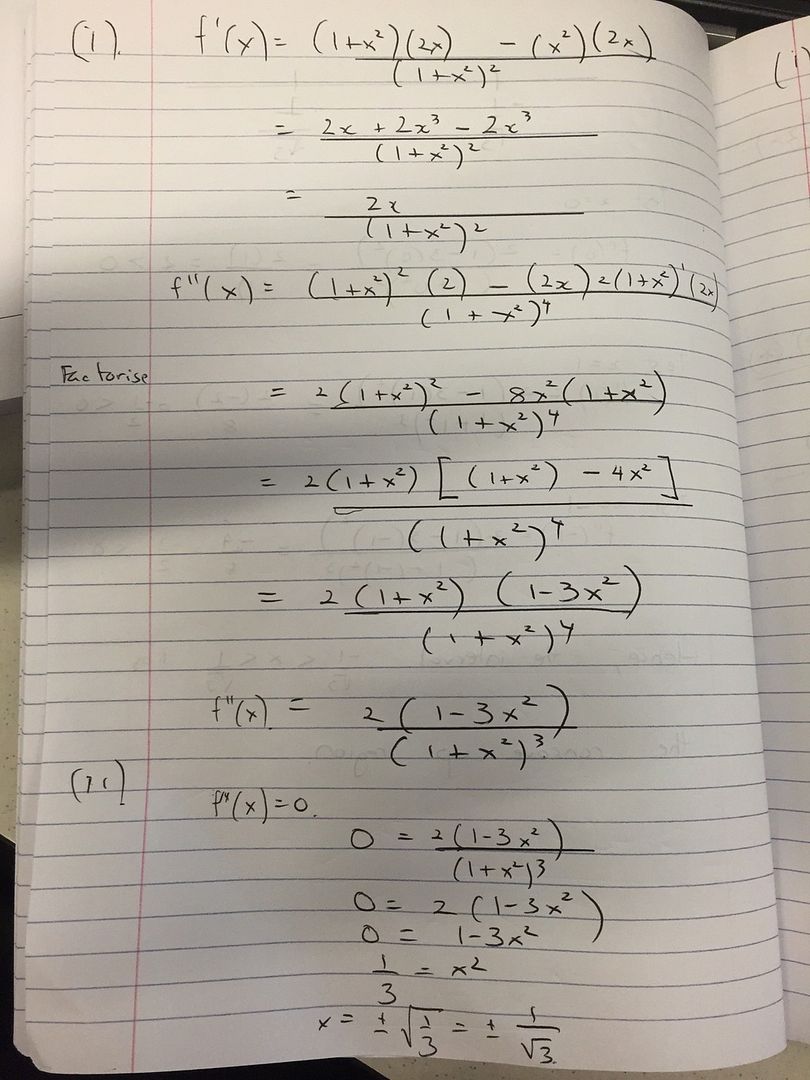 (i). f'(x) = (1+x²)(2x) - (x²)(2x) / (1+x²)²
= 2x + 2x³ - 2x³ / (1+x²)²
= 2x / (1+x²)²
f''(x) = (1+x²)² (2) - (2x) 2(1+x²)¹ (2x) / (1+x²)⁴
Factorise = 2(1+x²)² - 8x²(1+x²) / (1+x²)⁴
= 2(1+x²) [(1+x²) - 4x²] / (1+x²)⁴
= 2(1+x²) (1-3x²) / (1+x²)⁴
f''(x) = 2(1-3x²) / (1+x²)³
(ii) f''(x) = 0.
0 = 2(1-3x²) / (1+x²)³
0 = 2(1-3x²)
0 = 1-3x²
1/3 = x²
x = ± √(1/3) = ± 1/√3.
(i)